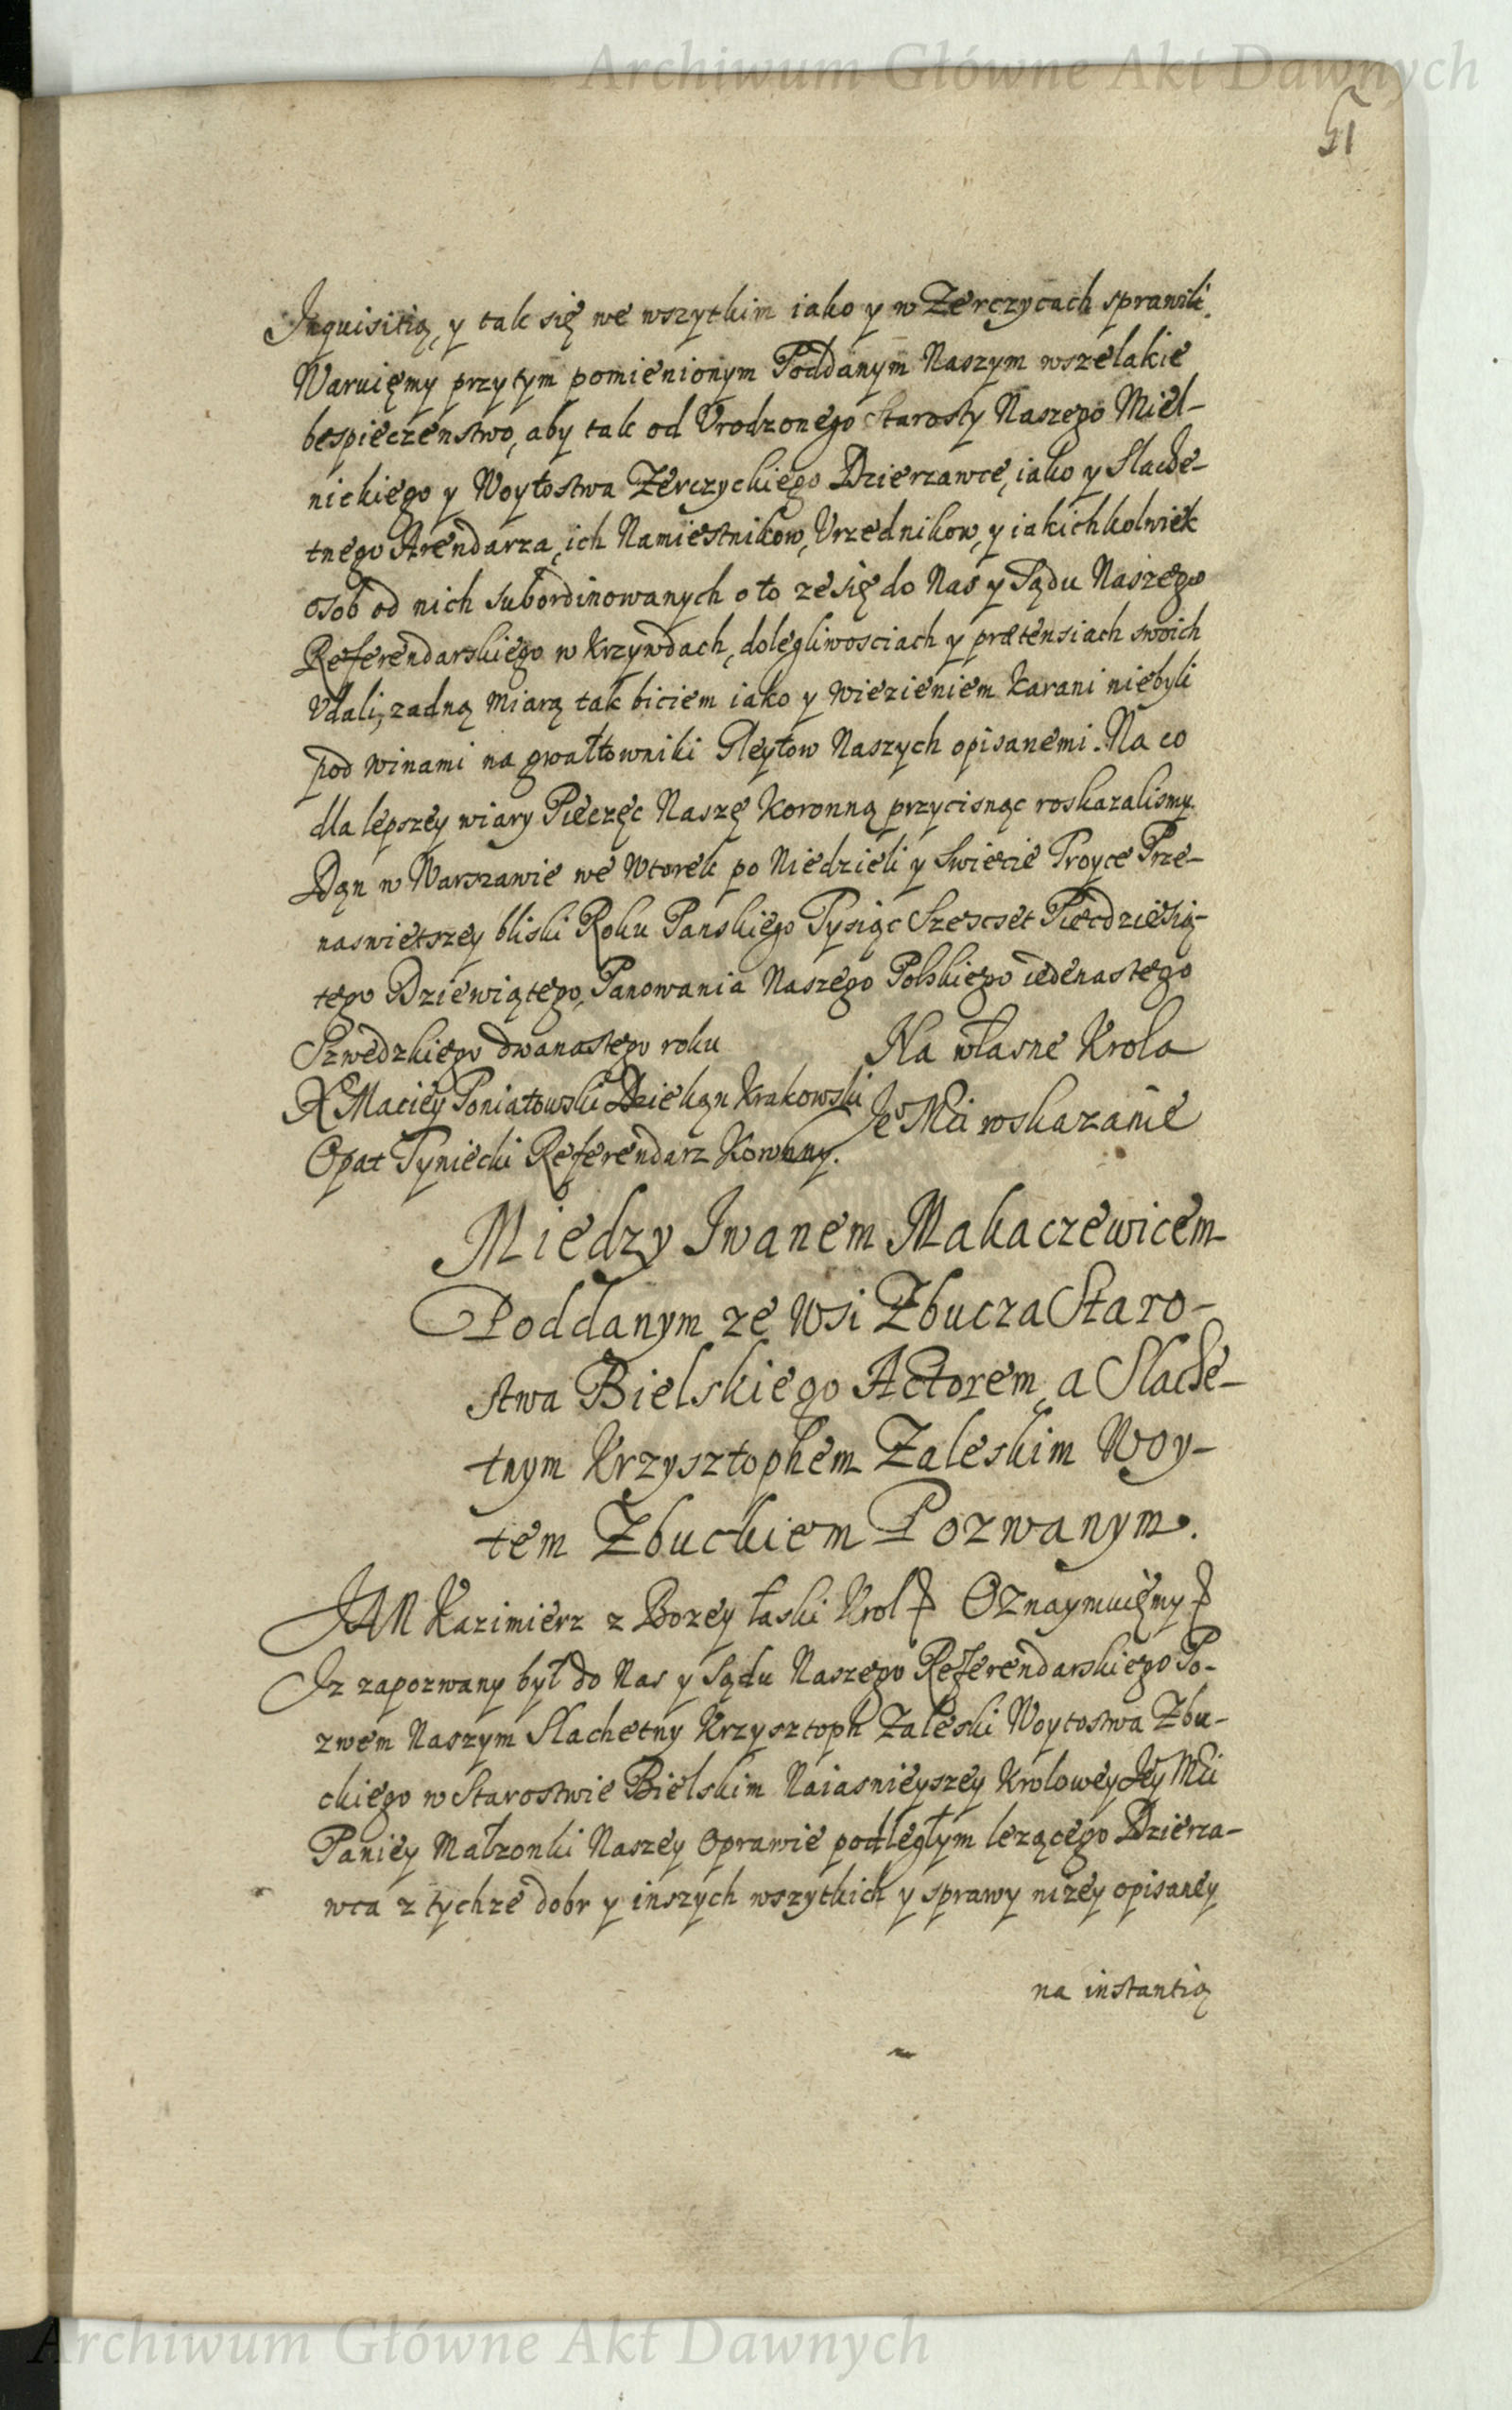 Archiwum Główne Akt Dawnych
51
Inquisitią, y tak się we wszytkim iako y w Zerczycach sprawili.
Waruięmy przytym pomienionym Poddanym Naszym wszelakie
bespieczenstwo, aby tak od Vrodzonego Starosty Naszego Miel-
nickiego y Woytostwa Zerczyckiego Dzierzawce, iako y Slache-
tnego Arendarza, ich Namiestnikow, Vrzednikow, y iakichkolwiek
osob od nich subordinowanych o to ze się do Nas y Sądu Naszego
Referendarskiego w krzywdach, dolegliwosciach y prætensiach swoich
Vdali, zadną miarą tak biciem iako y wiezieniem karani niebyli
pod winami na gwałtowniki Gleytow Naszych opisanemi. Na co
dla lepszey wiary Pieczęc Naszę Koronną przycisnąc roskazalismy.
Dąn w Warszawie we Wtorek po Niedzieli y Swiecie Troyce Prze-
naswietszey bliski Roku Panskiego Tysiąc Szescset Piecdziesią-
tego Dziewiątego, Panowania Naszego Polskiego iedenastego
Szwedzkiego dwanastego roku
Na własne Krola
X Maciey Poniatowski Dziekąn Krakowski
Je° Mći wskazanie
Opat Tyniecki Referendarz Koronny.
Miedzy Iwanem Makaczewicem
Poddanym ze wsi Zbucza Staro-
stwa Bielskiego Actorem, a Slache-
tnym Krzysztophem Zaleskim Woy-
tem Zbuckiem Pozwanym.
JAN Kazimierz z Bozey łaski Krol Oznaymuięmy
Iz zapozwany był do Nas y Sądu Naszego Referendarskiego Po-
zwem Naszym Slachetny Krzysztoph Zaleski Woytostwa Zbu-
ckiego w Starostwie Bielskim Naiasnieyszey Krolowey Jey Mći
Paniey Małzonki Naszey Oprawie podległym lezącego Dzierza-
wca z tychze dobr y inszych wszytkich y sprawy nizey opisaney
na instantią
Archiwum Główne Akt Dawnych